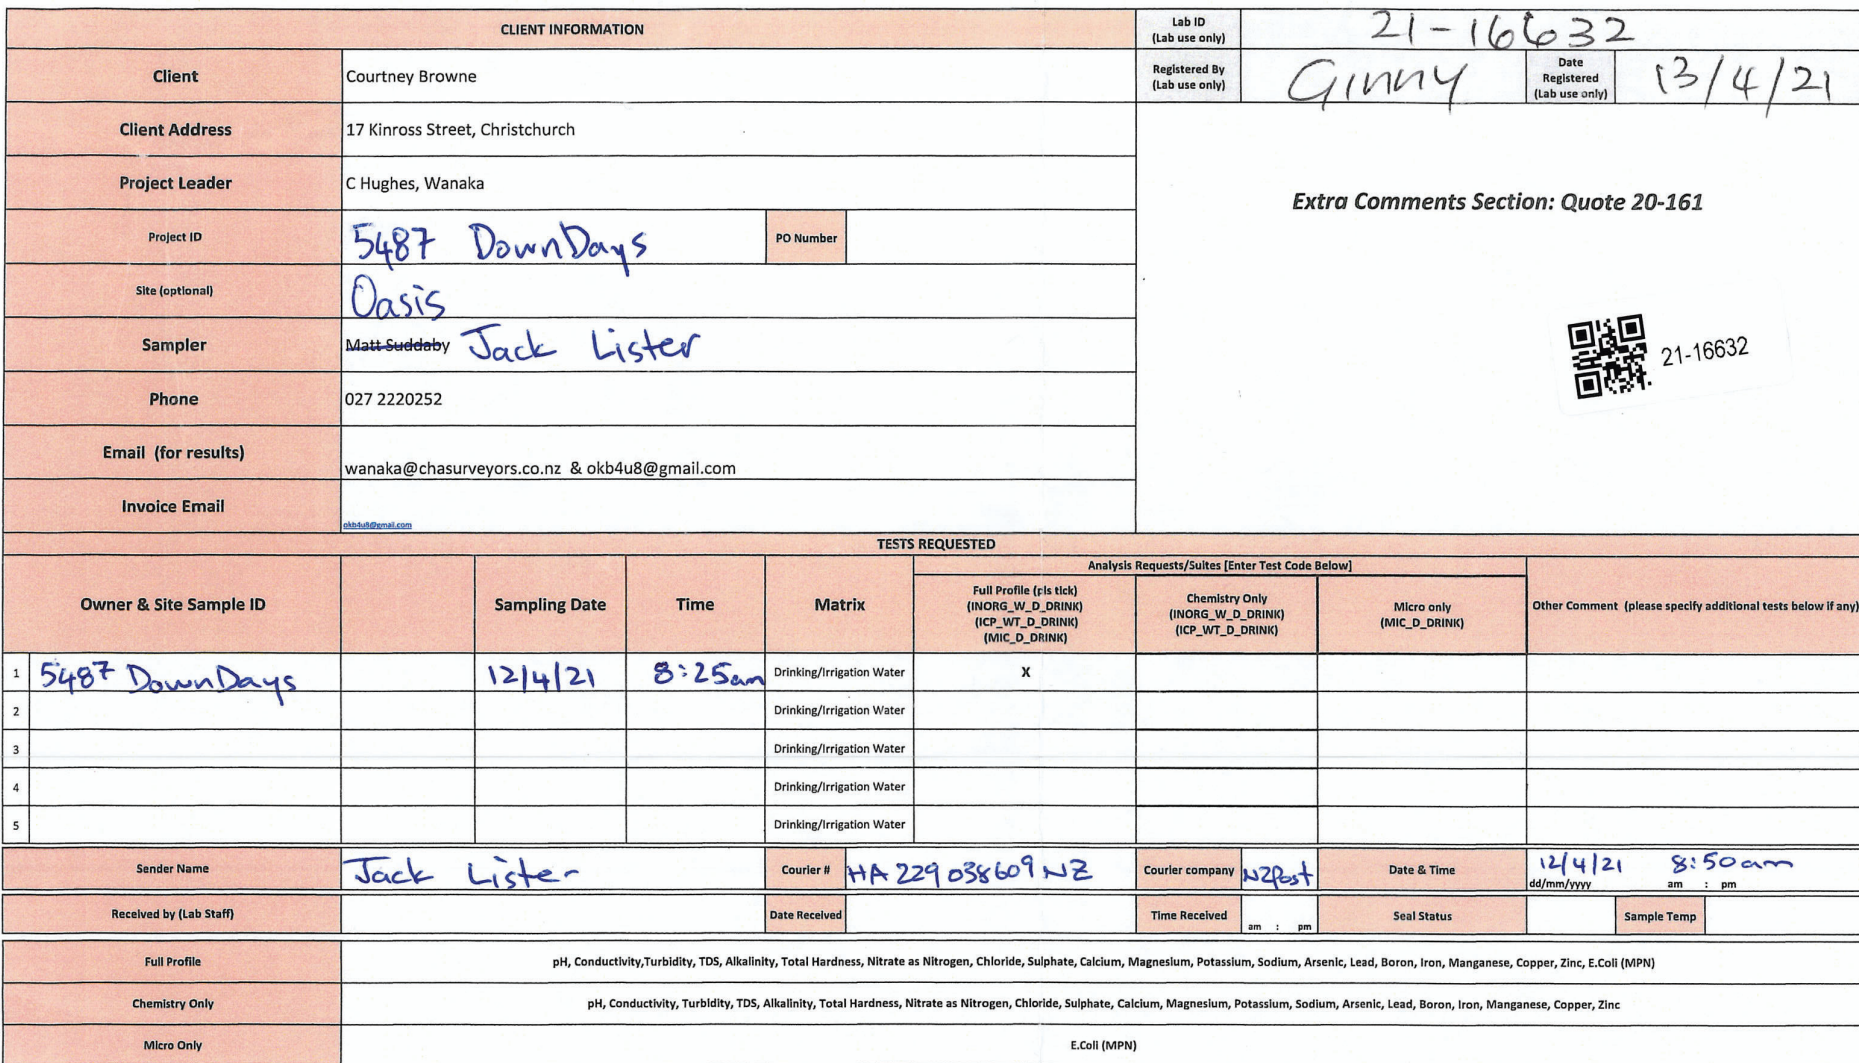 CLIENT INFORMATION
Lab ID (Lab use only) 21-16632
Client Courtney Browne
Registered By (Lab use only) Ginny Date Registered (Lab use only) 13/4/21
Client Address 17 Kinross Street, Christchurch
Project Leader C Hughes, Wanaka
Extra Comments Section: Quote 20-161
Project ID 5487 DownDays PO Number
Site (optional) Oasis
Sampler Matt Suddaby Jack Lister
21-16632
Phone 027 2220252
Email (for results) wanaka@chasurveyors.co.nz & okb4u8@gmail.com
Invoice Email okb4u8@gmail.com
TESTS REQUESTED
Analysis Requests/Suites [Enter Test Code Below]
Owner & Site Sample ID Sampling Date Time Matrix
Full Profile (pls tick)
(INORG_W_D_DRINK)
(ICP_WT_D_DRINK)
(MIC_D_DRINK)
Chemistry Only
(INORG_W_D_DRINK)
(ICP_WT_D_DRINK)
Micro only
(MIC_D_DRINK)
Other Comment (please specify additional tests below if any)
1 5487 DownDays 12/4/21 8:25am Drinking/Irrigation Water X
2 Drinking/Irrigation Water
3 Drinking/Irrigation Water
4 Drinking/Irrigation Water
5 Drinking/Irrigation Water
Sender Name Jack Lister Courier # HA 229 038609 NZ Courier company NZPost Date & Time 12/4/21 8:50am
dd/mm/yyyy am : pm
Received by (Lab Staff) Date Received Time Received am : pm Seal Status Sample Temp
Full Profile pH, Conductivity,Turbidity, TDS, Alkalinity, Total Hardness, Nitrate as Nitrogen, Chloride, Sulphate, Calcium, Magnesium, Potassium, Sodium, Arsenic, Lead, Boron, Iron, Manganese, Copper, Zinc, E.Coli (MPN)
Chemistry Only pH, Conductivity, Turbidity, TDS, Alkalinity, Total Hardness, Nitrate as Nitrogen, Chloride, Sulphate, Calcium, Magnesium, Potassium, Sodium, Arsenic, Lead, Boron, Iron, Manganese, Copper, Zinc
Micro Only E.Coli (MPN)